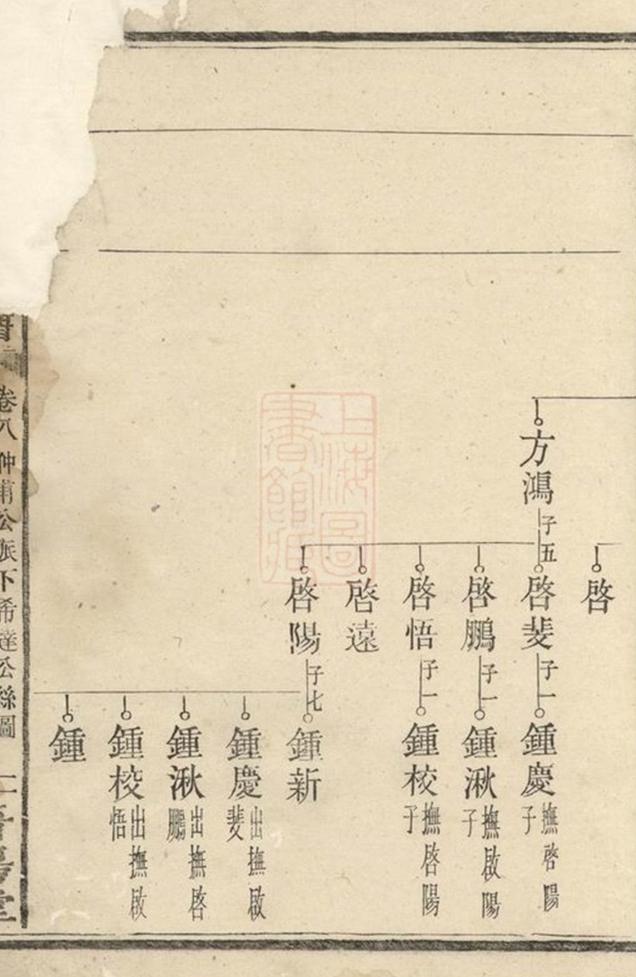 啓
方鴻 子五
啓斐 子一
鍾慶 撫啓陽子
啓鵬 子一
鍾湫 撫啟陽子
啓悟 子一
鍾校 撫啓陽子
啓遠
啓陽 子七
鍾新
鍾慶 出撫啟斐
鍾湫 出撫啓鵬
鍾校 出撫啟悟
鍾
卷八 仲甫公派下希達公絲圖
上海圖書館藏